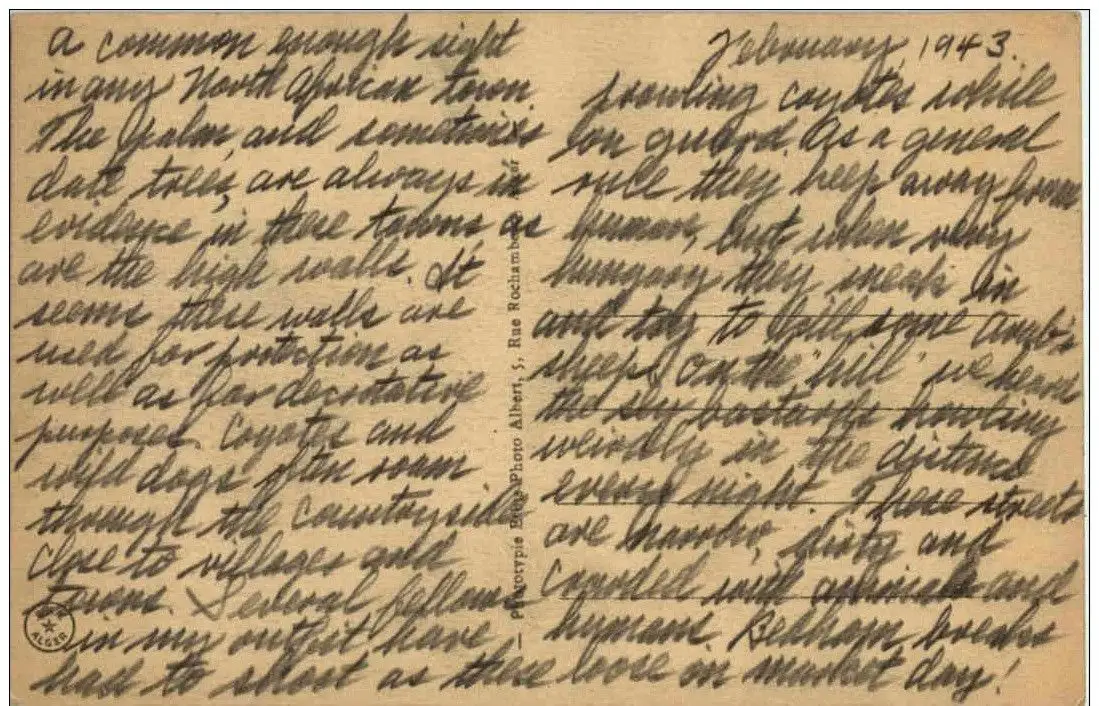 a common enough sight
in any North African town.
The palm, and sometimes
date trees, are always in
evidence in these towns as
are the high walls. It
seems these walls are
used for protection as
well as for decorative
purposes. Coyotes and
wild dogs often roam
through the countryside
close to villages and
towns. Several fellows
in my outfit have
had to shoot at these
February, 1943.
prowling coyotes while
on guard. As a general
rule they keep away from
humans, but when very
hungary they sneak in
and try to kill some Arabs
sheep. On the "hill" we heard
the bastards howling
weirdly in the distance
every night. These streets
are narrow, dirty and
crowded with animals and
humans. Bedlam breaks
loose on market day!
Phototypie Photo Albert, 5, Rue Rochambeau
ALGER